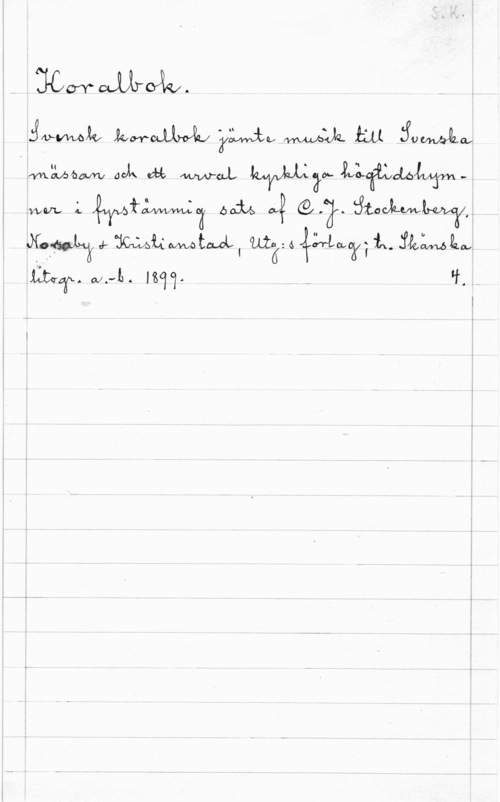 S. K.
Koralbok.
Svensk koralbok jämte musik till Svenska
mässan och ett urval kyrkliga högtidshym-
ner i fyrstämmig sats af C. J. Stockenberg.
Nosaby & Kristianstad, Utg:s förlag; tr. Skånska
litogr. a.-b. 1899. 4.